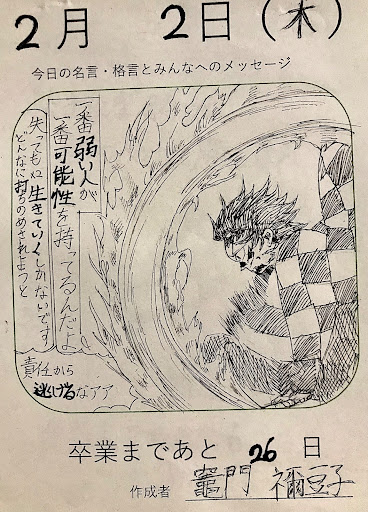 2月 2日(木)
今日の名言・格言とみんなへのメッセージ
一番弱い人が
一番可能性を持ってるんだよ
失っても失っても生きていくしかないです
どんなに打ちのめされようと
責任から
逃げるなアア
卒業まであと 26 日
作成者 竈門 禰豆子